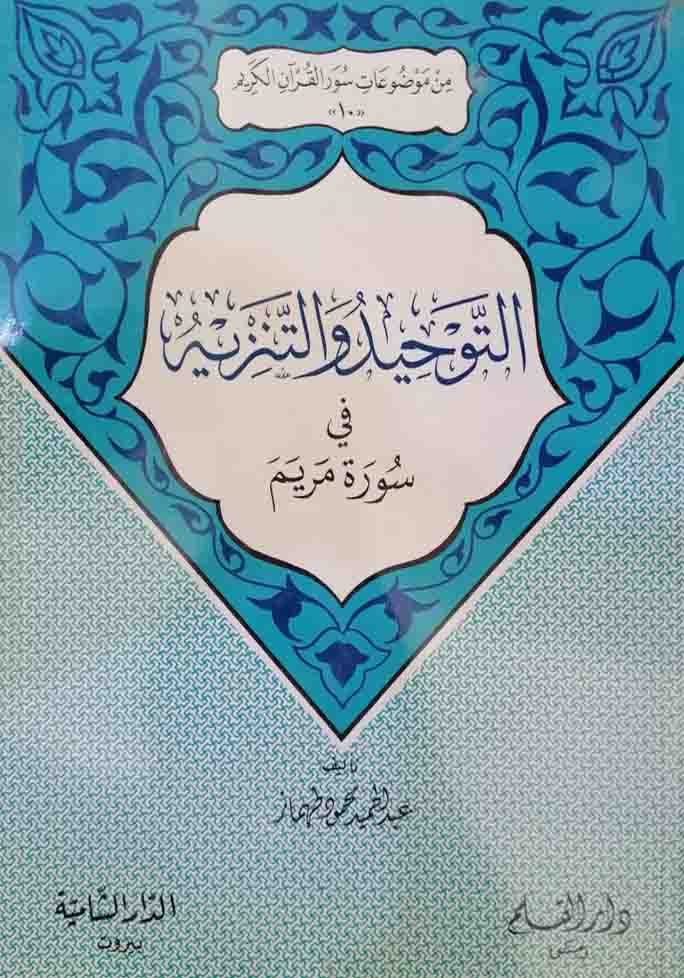 مِنْ مَوْضُوعَاتِ سُوَرِ القُرْآنِ الكَرِيمِ
«١٠»
التَّوْحِيدُ وَالتَّنْزِيهُ
في
سُورَةِ مَرْيَمَ
تأليف
عبد الحميد محمود طهماز
دار القلم
دمشق
الدار الشامية
بيروت